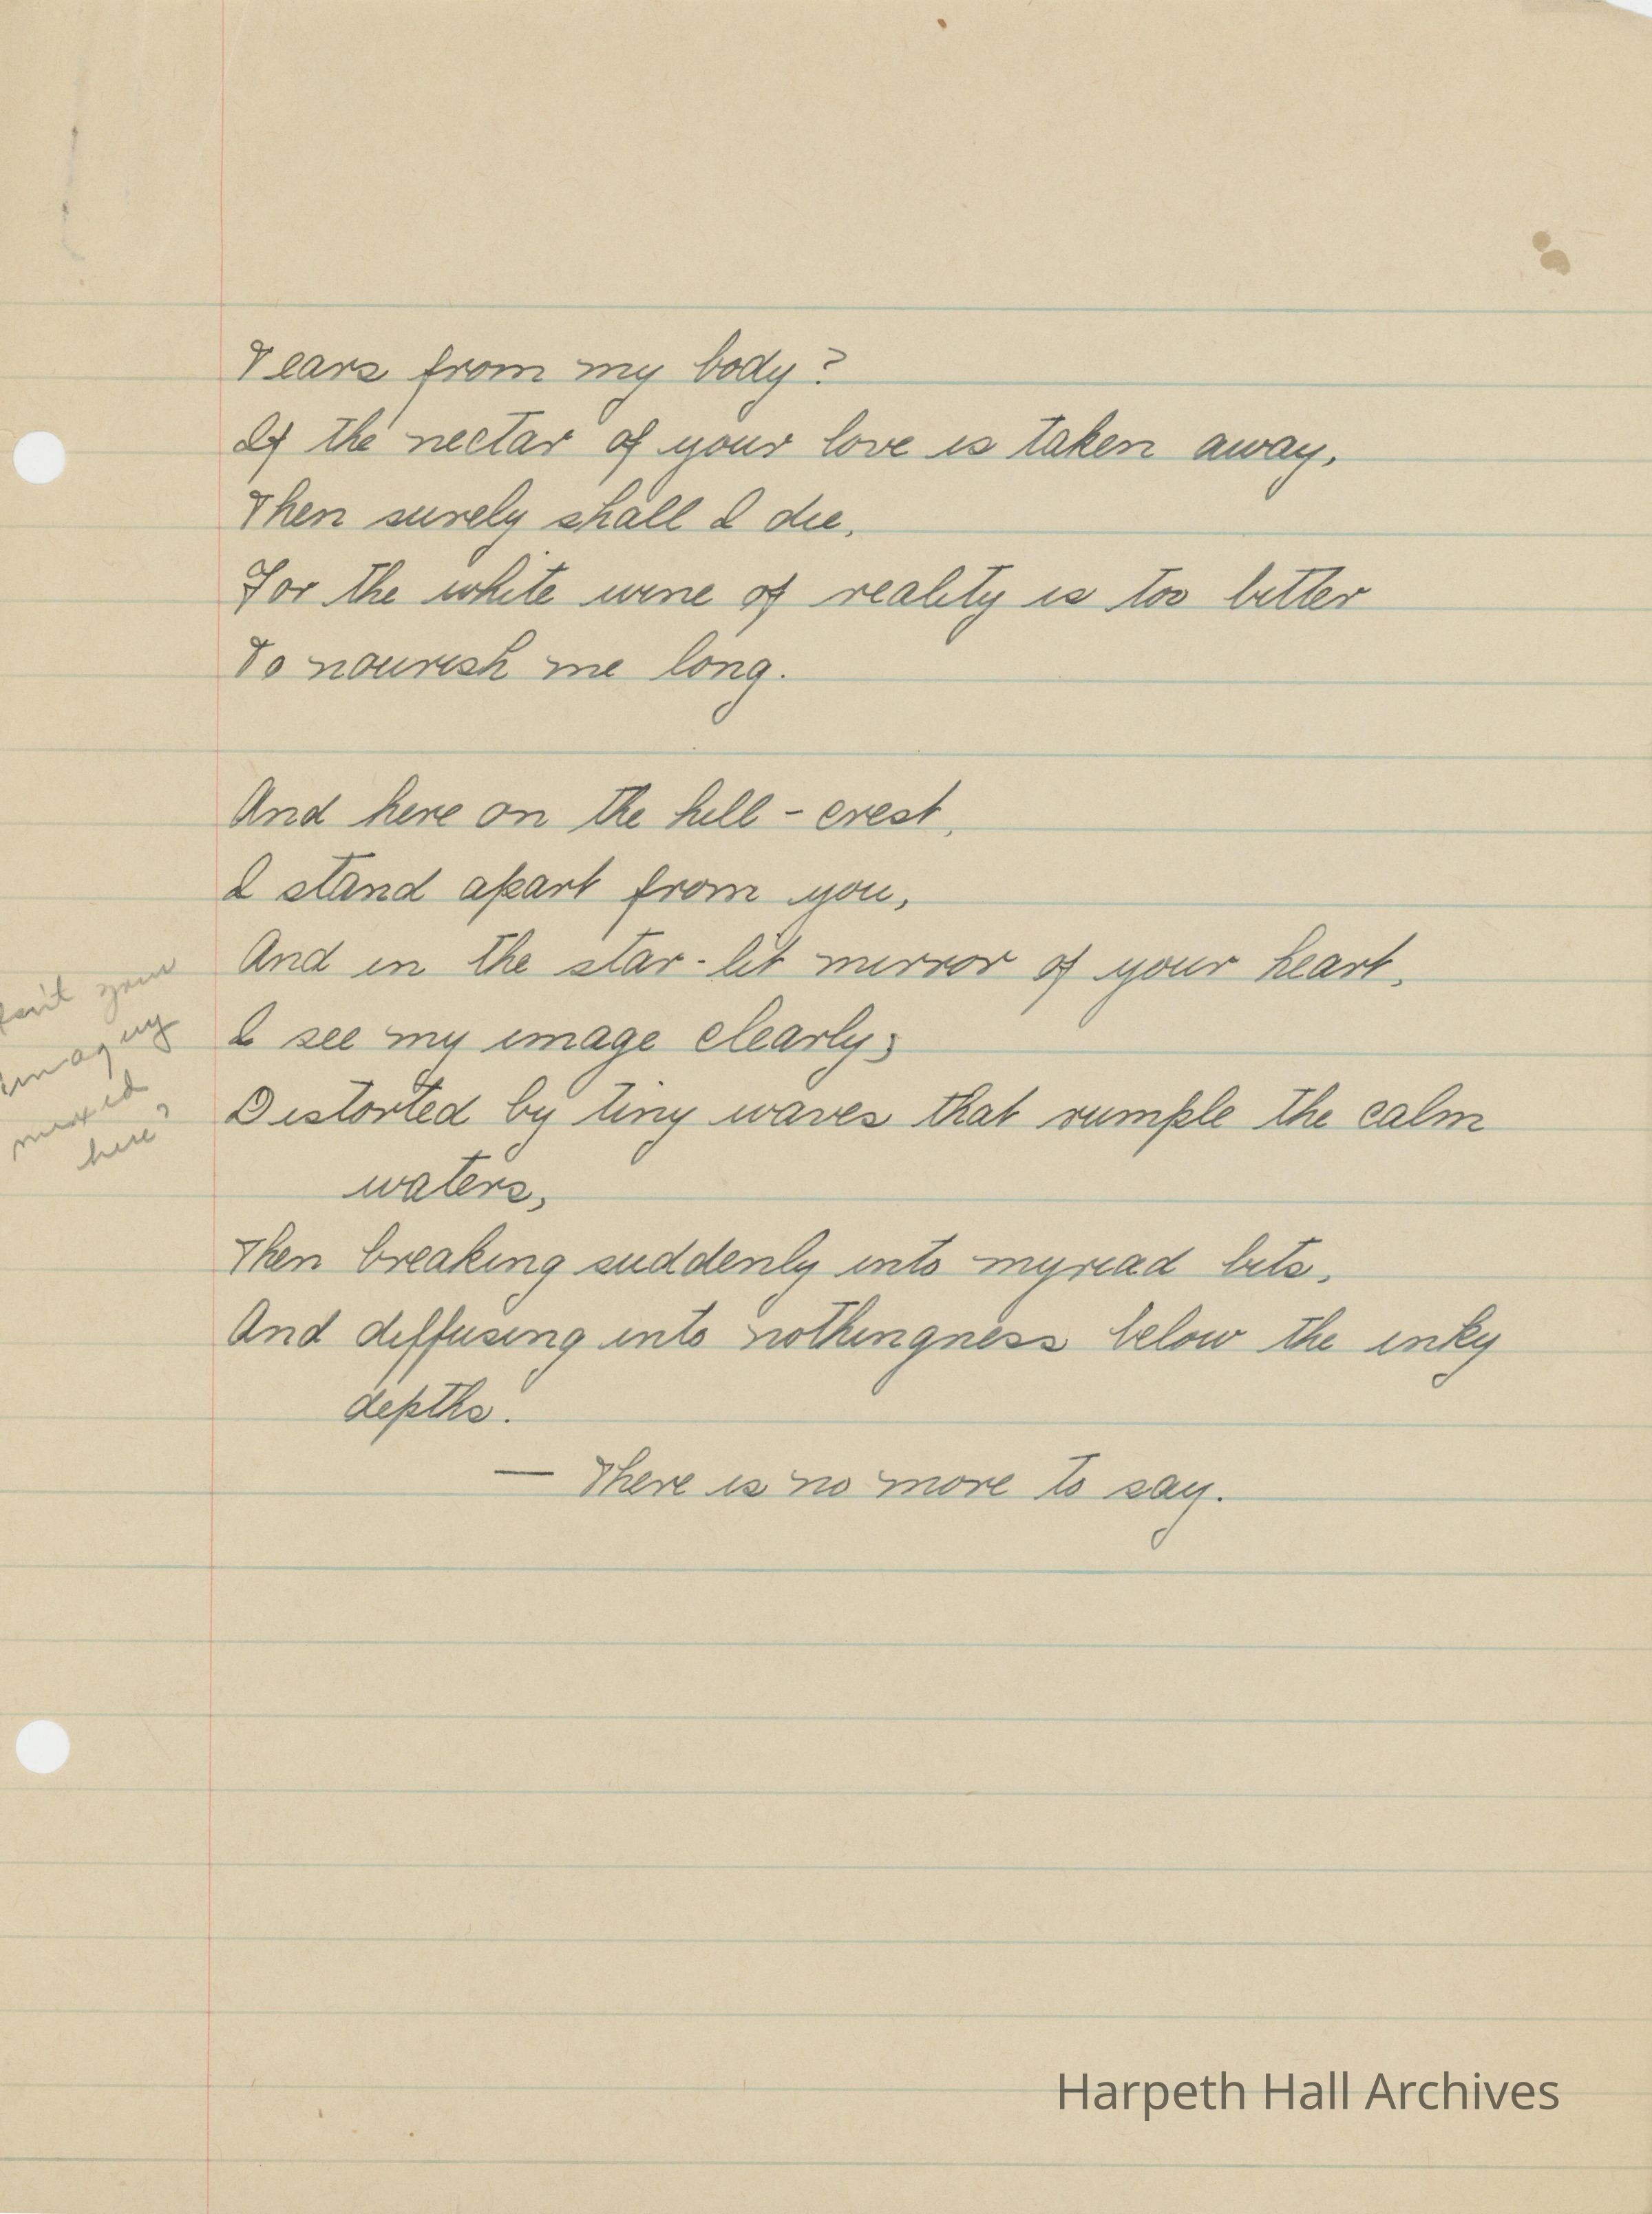 Tears from my body?
If the nectar of your love is taken away,
Then surely shall I die,
For the white wine of reality is too bitter
To nourish me long.
And here on the hill-crest,
I stand apart from you,
And in the star-lit mirror of your heart,
I see my image clearly;
Distorted by tiny waves that rumple the calm
waters,
Then breaking suddenly into myriad bits,
And diffusing into nothingness below the inky
depths.
— There is no more to say.
Isn't your
imagery
mixed
here?
Harpeth Hall Archives